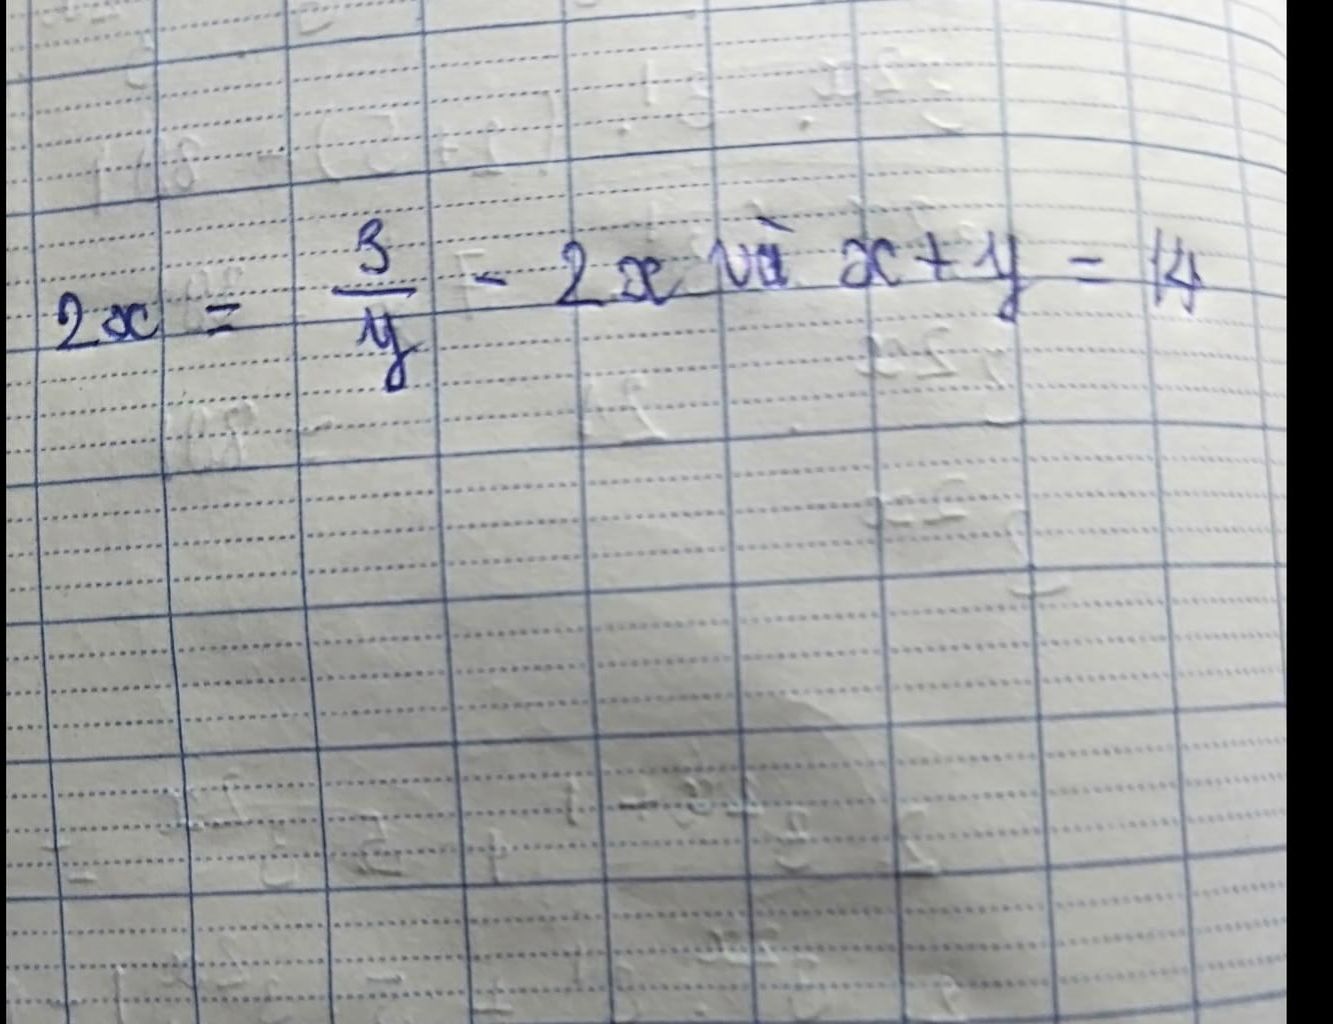 2x = 3/y - 2x và x + y = 14